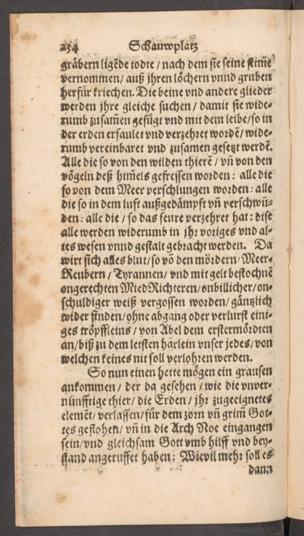 234 Schauwplatz
gräbern ligẽde todte / nach dem sie seine stim̃e
vernommen / auß jhren löchern vnnd gruben
herfür kriechen. Die beine vnd andere glieder
werden jhre gleiche suchen / damit sie wide-
rumb zusam̃en gefügt vnd mit dem leibe / so in
der erden erfaulet vnd verzehret wordẽ / wide-
rumb vereinbaret vnd zusamen gesetzt werdẽ.
Alle die so von den wilden thierẽ / vñ von den
vögeln deß him̃els gefressen worden: alle die
so von dem Meer verschlungen worden: alle
die so in dem luft außgedämpft vñ verschwũ-
den: alle die / so das feure verzehret hat: dise
alle werden widerumb in jhr voriges vnd al-
tes wesen vnnd gestalt gebracht werden. Da
wirt sich alles blut / so võ den mördern / Meer-
Reubern / Tyrannen / vnd mit gelt bestochnẽ
ongerechten MiedRichteren / onbillicher / on-
schuldiger weiß vergossen worden / gäntzlich
wider finden / ohne abgang oder verlurst eini-
ges tröpffleins / von Abel dem erstermördten
an / biß zu dem letsten härlein vnser jedes / von
welchen keines nit soll verlohren werden.
So nun einen hette mögen ein grausen
ankommen / der da gesehen / wie die vnver-
nünfftige thier / die Erden / jhr zugeeignetes
elemẽt / verlassen / für dem zorn vñ grim̃ Got-
tes geflohen / vñ in die Arch Noe eingangen
sein / vnd gleichsam Gott vmb hilff vnd bey-
stand angeruffet haben: Wievil mehr soll es
dann